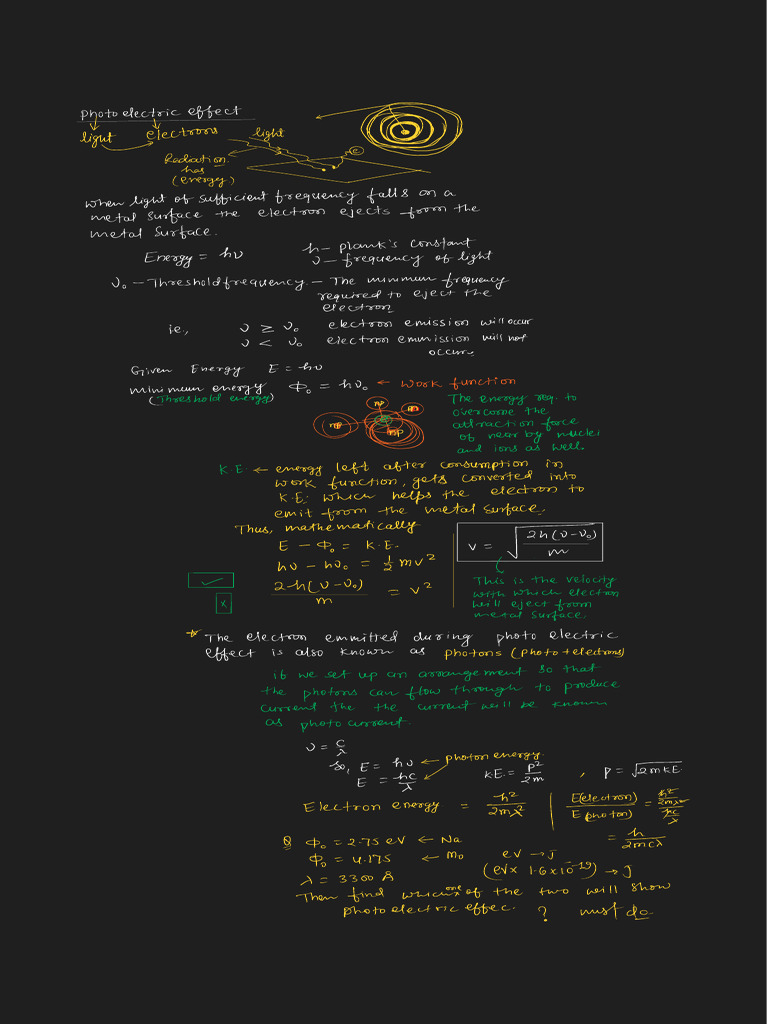 photoelectric effect
light electrons light e
Radiation
has
(energy)
when light of sufficient frequency falls on a
metal surface the electron ejects from the
metal surface.
Energy = hν h – plank's constant
ν – frequency of light
ν₀ – Threshold frequency – The minimum frequency
required to eject the
electron
ie., ν ≥ ν₀ electron emission will occur
ν < ν₀ electron emmission will not
occur
Given Energy E = hν
minimum energy Φ₀ = hν₀ ← Work function
(Threshold energy)
The energy req. to
overcome the
attraction force
of near by nuclei
and ions as well.
K.E. ← energy left after consumption in
work function, gets converted into
K.E. which helps the electron to
emit from the metal surface.
Thus, mathematically
E – Φ₀ = K.E.
hν – hν₀ = ½ mv²
2h(ν–ν₀)/m = v²
v = √(2h(ν–ν₀)/m)
✓
x
This is the velocity
with which electron
will eject from
metal surface.
* The electron emmitted during photo electric
effect is also known as photons (photo + electrons)
if we set up an arrangement so that
the photons can flow through to produce
current the the current will be known
as photo current.
ν = c/λ
so, E = hν ← photon energy.
E = hc/λ
K.E. = p²/2m , p = √2mKE
Electron energy = h²/2mλ²
E(electron)/E(photon) = (h²/2mλ²)/(hc/λ)
= h/2mcλ
Q Φ₀ = 2.75 eV ← Na
Φ₀ = 4.175 ← Mo
eV → J
λ = 3300 Å (eV × 1.6×10⁻¹⁹) → J
Then find which one of the two will show
photoelectric effec. ? must do